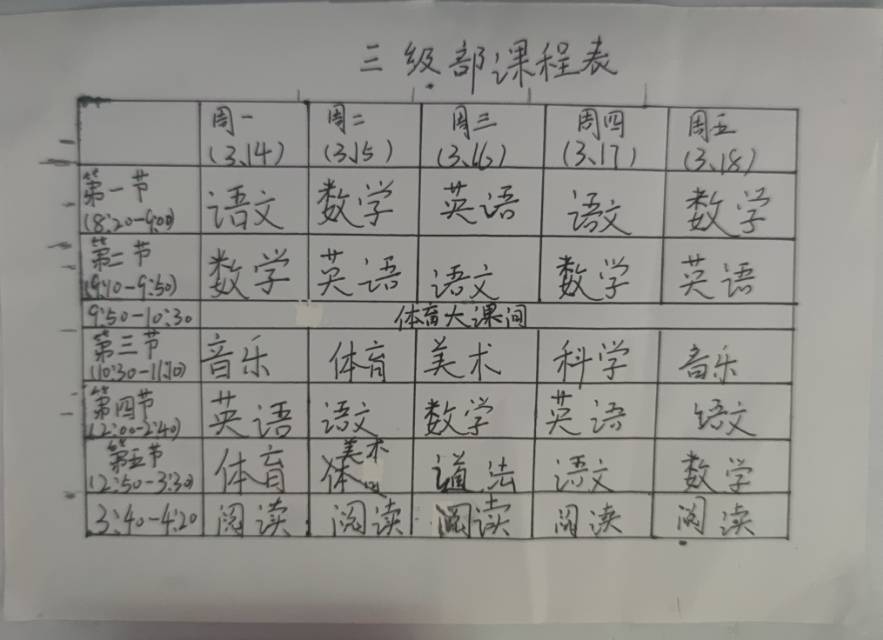 三级部课程表
周一 周二 周三 周四 周五
(3.14) (3.15) (3.16) (3.17) (3.18)
第一节 语文 数学 英语 语文 数学
(8:20-9:00)
第二节 数学 英语 语文 数学 英语
(9:10-9:50)
9:50-10:30 体育大课间
第三节 音乐 体育 美术 科学 音乐
(10:30-11:10)
第四节 英语 语文 数学 英语 语文
(2:00-2:40)
第五节 体育 美术 道法 语文 数学
(2:50-3:30)
3:40-4:20 阅读 阅读 阅读 阅读 阅读